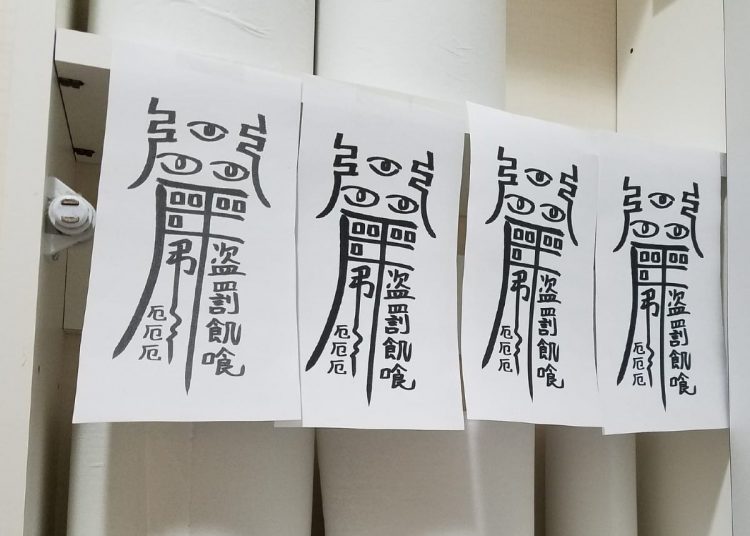 盗罰飢喰
厄厄厄
盗罰飢喰
厄厄厄
盗罰飢喰
厄厄厄
盗罰飢喰
厄厄厄